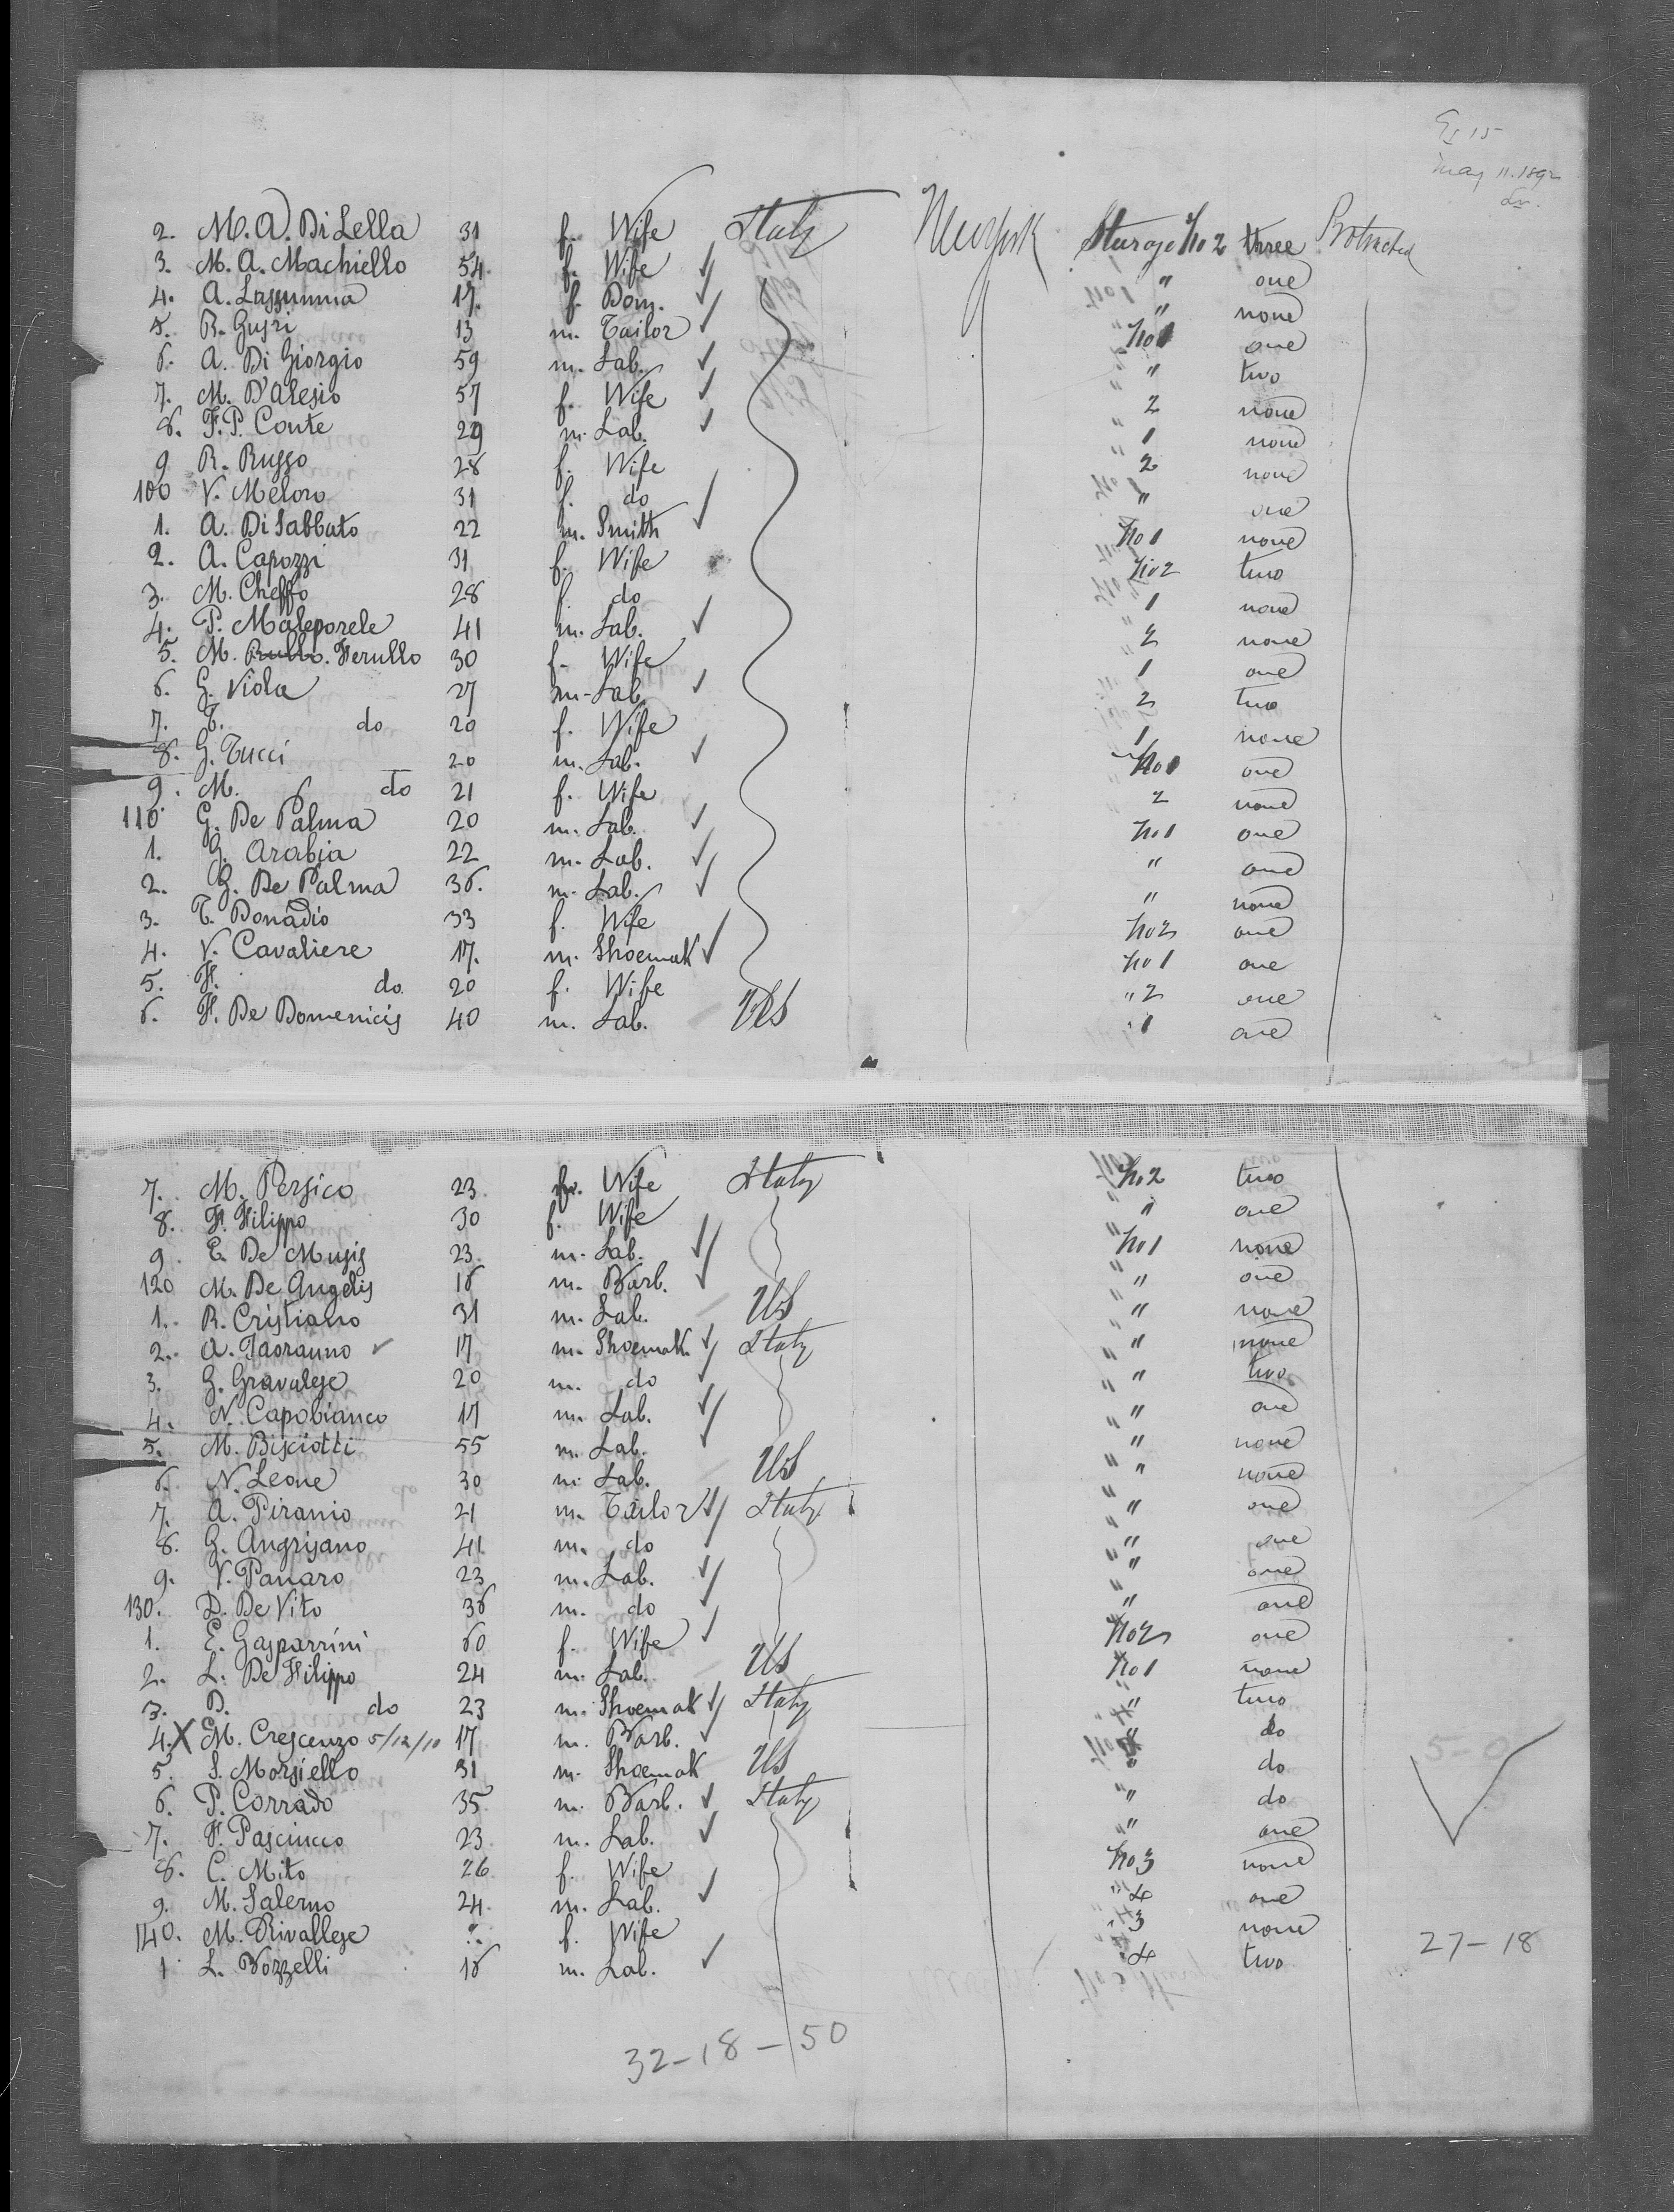 May 11. 1892
2. M. A. DiLella 31 f. Wife Italy New York Steerage No 2 three Protracted
3. M. A. Machiello 54. f. Wife ✓ " one
4. A. 17. f. Dom. ✓ " none
5. R. 13 m. Tailor ✓ No 1 one
6. A. Di Giorgio 59 m. Lab. ✓ " two
7. M. D'Alesio 57 f. Wife ✓ 2 none
8. F. P. Conte 29 m. Lab. ✓ 1 none
9 R. Russo 28 f. Wife 2 none
100 V. Meloro 31 f. do ✓ " one
1. A. Di Sabbato 22 m. Smith ✓ No 1 none
2. A. Capozzi 31 f. Wife No 2 two
3. M. Cheffo 28 f. do 1 none
4. P. Maleporele 41 m. Lab. ✓ 2 none
5. M. Rullo. Ferullo 30 f. Wife 1 one
6. G. Viola 27 m. Lab. ✓ 2 two
7. do 20 f. Wife 1 none
8. G. Tucci 20 m. Lab. ✓ No 1 one
9. M. do 21 f. Wife 2 none
110 G. De Palma 20 m. Lab. ✓ No 1 one
1. G. Arabia 22 m. Lab. ✓ " one
2. G. De Palma 36. m. Lab. ✓ " none
3. T. Donadio 33 f. Wife No 2 one
4. V. Cavaliere 17. m. Shoemak ✓ No 1 one
5. F. do 20 f. Wife " 2 one
6. F. De Domenicis 40 m. Lab. US 1 one
7. M. Persico 23 f. Wife Italy No 2 two
8. F. Filippo 30 f. Wife " one
9. E. De Musis 23. m. Lab. ✓ No 1 none
120 M. De Angelis 16 m. Barb. ✓ " one
1. R. Cristiano 31 m. Lab. US " none
2. A. Taoranno ✓ 17 m. Shoemak. ✓ Italy " none
3. G. Gravalese 20 m. do ✓ " two
4. N. Capobianco 17 m. Lab. ✓ " one
5. M. Bisciotti 55 m. Lab. ✓ " none
6. N. Leone 30 m. Lab. US " none
7. A. Piranio 21 m. Tailor ✓ Italy " one
8. G. Angrisano 41 m. do ✓ " one
9. V. Panaro 23 m. Lab. ✓ " one
130. D. De Vito 36 m. do ✓ " one
1. E. Gasparrini 60 f. Wife ✓ No 2 one
2. L. De Filippo 24 m. Lab. US No 1 none
3. D. do 23 m. Shoemak ✓ Italy " two
4. X M. Crescenzo 5/12/10 17 m. Barb. ✓ " do
5. S. Morsiello 31 m. Shoemak US " do
6. P. Corrado 35 m. Barb. ✓ Italy " do
7. F. Pasciucco 23 m. Lab. ✓ " one
8. C. Mito 26 f. Wife No 3 none
9. M. Salerno 24. m. Lab. ✓ 4 one
140. M. Rivallese f. Wife 3 none
1 L. Bozzelli 16 m. Lab. ✓ 4 two
5-0
27-18
32-18-50